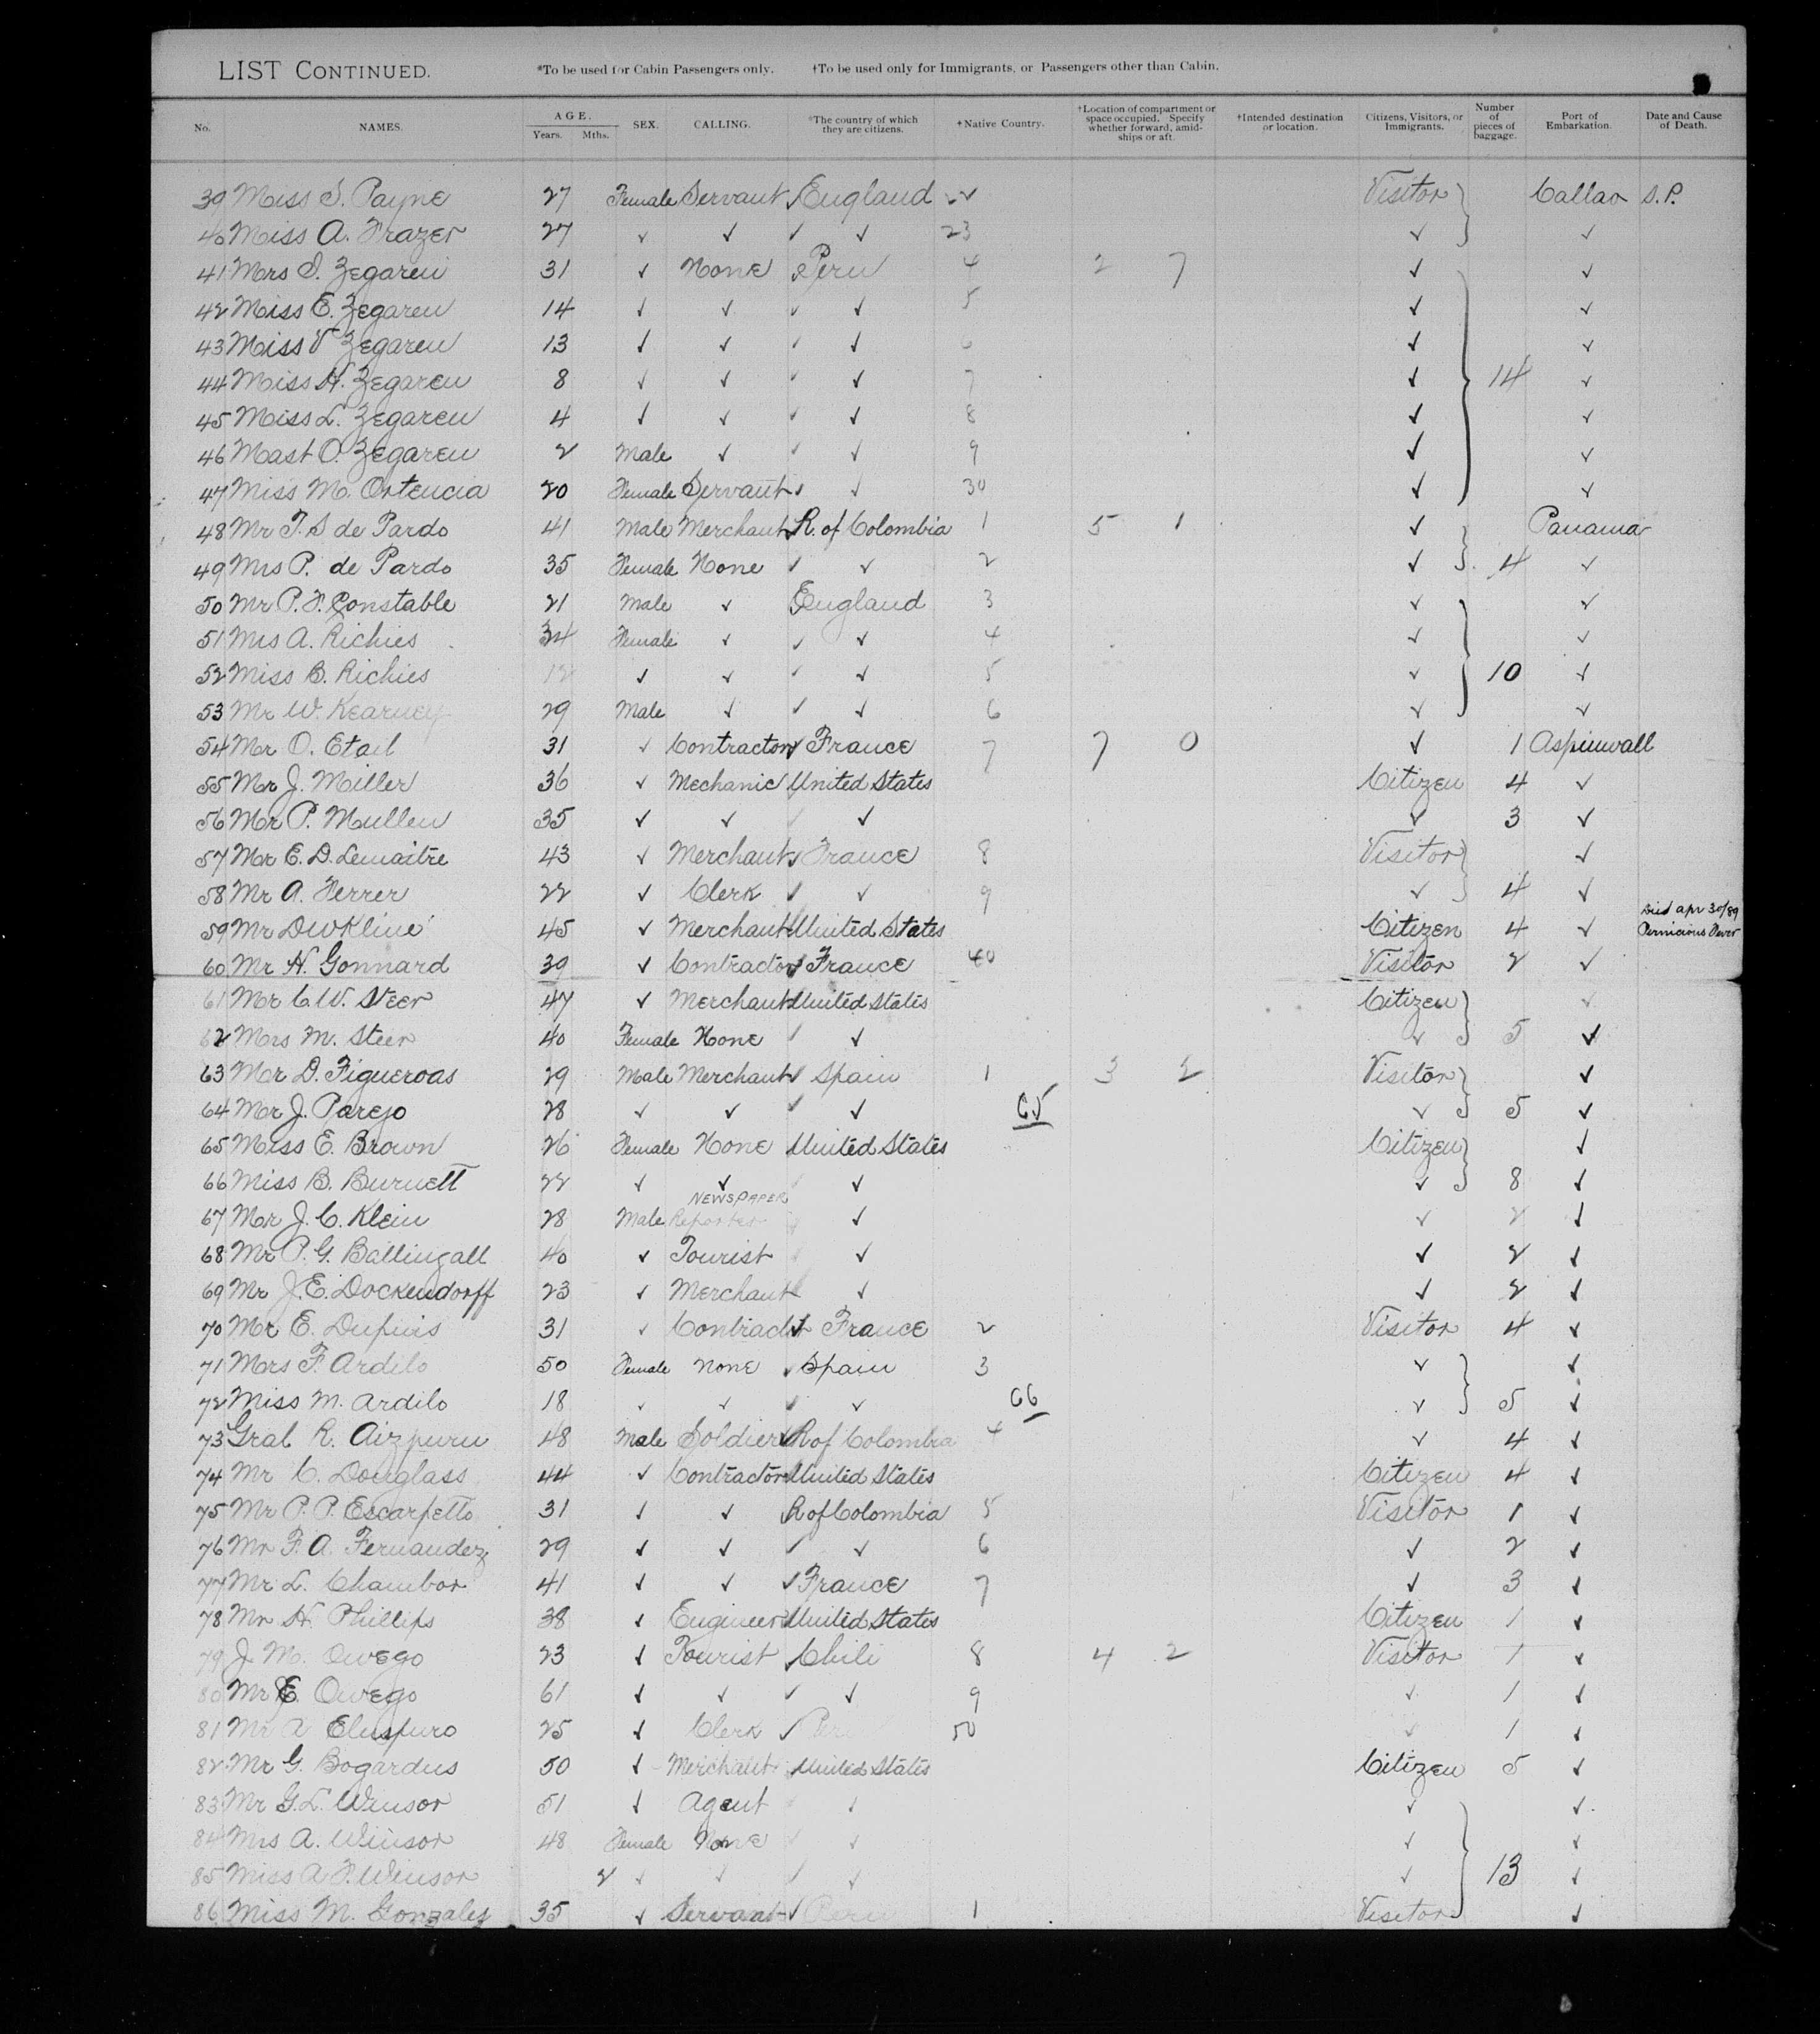 LIST CONTINUED. *To be used for Cabin Passengers only. †To be used only for Immigrants, or Passengers other than Cabin.
No. NAMES. AGE. Years. Mths. SEX. CALLING. *The country of which they are citizens. †Native Country. †Location of compartment or space occupied. Specify whether forward, amidships or aft. †Intended destination or location. Citizens, Visitors, or Immigrants. Number of pieces of baggage. Port of Embarkation. Date and Cause of Death.
39 Miss S. Payne 27 Female Servant England Visitor Callao S.P.
40 Miss A. Frazer 27 ✓ ✓ ✓ ✓ 23 ✓ ✓
41 Mrs S. Zegareu 31 ✓ None Peru 4 2 7 ✓ ✓
42 Miss E. Zegareu 14 ✓ ✓ ✓ ✓ 5 ✓ ✓
43 Miss V Zegareu 13 ✓ ✓ ✓ ✓ ✓ ✓
44 Miss H. Zegareu 8 ✓ ✓ ✓ ✓ 7 ✓ 14 ✓
45 Miss L. Zegareu 4 ✓ ✓ ✓ ✓ 8 ✓ ✓
46 Mast O. Zegareu 2 Male ✓ ✓ ✓ 9 ✓ ✓
47 Miss M. Ortencia 20 Female Servant ✓ ✓ 30 ✓ ✓
48 Mr T. S de Pardo 41 Male Merchant R. of Colombia 1 5 1 ✓ Panama
49 Mrs P. de Pardo 35 Female None ✓ ✓ 2 ✓ 4 ✓
50 Mr P. F. Constable 21 Male ✓ England 3 ✓ ✓
51 Mrs A. Richies 34 Female ✓ ✓ ✓ 4 ✓ ✓
52 Miss B. Richies 12 ✓ ✓ ✓ ✓ 5 ✓ 10 ✓
53 Mr W. Kearney 29 Male ✓ ✓ ✓ 6 ✓ ✓
54 Mr O. Etail 31 ✓ Contractor France 7 7 0 ✓ 1 Aspinwall
55 Mr J. Miller 36 ✓ Mechanic United States Citizen 4 ✓
56 Mr P. Mullen 35 ✓ ✓ ✓ ✓ ✓ 3 ✓
57 Mr E. D. Lemaitre 43 ✓ Merchant France 8 Visitor ✓
58 Mr A. Ferrer 22 ✓ Clerk ✓ ✓ 9 ✓ 4 ✓
59 Mr D W Kline 45 ✓ Merchant United States Citizen 4 ✓ Died apr 30/89 Pernicious Fever
60 Mr H. Gonnard 39 ✓ Contractor France 40 Visitor 2 ✓
61 Mr C. W. Steer 47 ✓ Merchant United States Citizen ✓
62 Mrs M. Steer 40 Female None ✓ ✓ ✓ 5 ✓
63 Mr D. Figueroas 29 Male Merchant Spain 1 3 2 Visitor ✓
64 Mr J. Parejo 28 ✓ ✓ ✓ ✓ 65 ✓ 5 ✓
65 Miss E. Brown 26 Female None United States Citizen ✓
66 Miss B. Burnett 22 ✓ ✓ ✓ ✓ ✓ 8 ✓
67 Mr J. C. Klein 28 Male NEWSPAPER Reporter ✓ ✓ 2 ✓
68 Mr P. G. Ballingall 40 ✓ Tourist ✓ ✓ 2 ✓
69 Mr J. E. Dockendorff 23 ✓ Merchant ✓ ✓ 2 ✓
70 Mr E. Dupuis 31 ✓ Contract France 2 Visitor 4 ✓
71 Mrs F. Ardilo 50 Female None Spain 3 ✓ ✓
72 Miss M. Ardilo 18 ✓ ✓ ✓ ✓ 66 ✓ 5 ✓
73 Gral R. Aizpuru 48 Male Soldier R of Colombia 4 ✓ 4 ✓
74 Mr C. Douglass 44 ✓ Contractor United States Citizen 4 ✓
75 Mr P. P. Escarpetto 31 ✓ ✓ R of Colombia 5 Visitor 1 ✓
76 Mr F. A. Fernandez 29 ✓ ✓ ✓ ✓ 6 ✓ 2 ✓
77 Mr L. Chambor 41 ✓ ✓ ✓ France 7 ✓ 3 ✓
78 Mr H. Phillips 38 ✓ Engineer United States Citizen 1 ✓
79 J. M. Owego 23 ✓ Tourist Chili 8 4 2 Visitor 1 ✓
80 Mr E. Owego 61 ✓ ✓ ✓ ✓ 9 ✓ 1 ✓
81 Mr A Eluspuro 25 ✓ Clerk ✓ Peru 50 ✓ 1 ✓
82 Mr G. Bogardus 50 ✓ Merchant United States Citizen 5 ✓
83 Mr G. L. Winsor 51 ✓ Agent ✓ ✓ ✓
84 Mrs A. Winsor 48 Female None ✓ ✓ ✓ ✓
85 Miss A F. Winsor 2 ✓ ✓ ✓ ✓ ✓ 13 ✓
86 Miss M. Gonzalez 35 ✓ Servant ✓ Peru 1 Visitor ✓